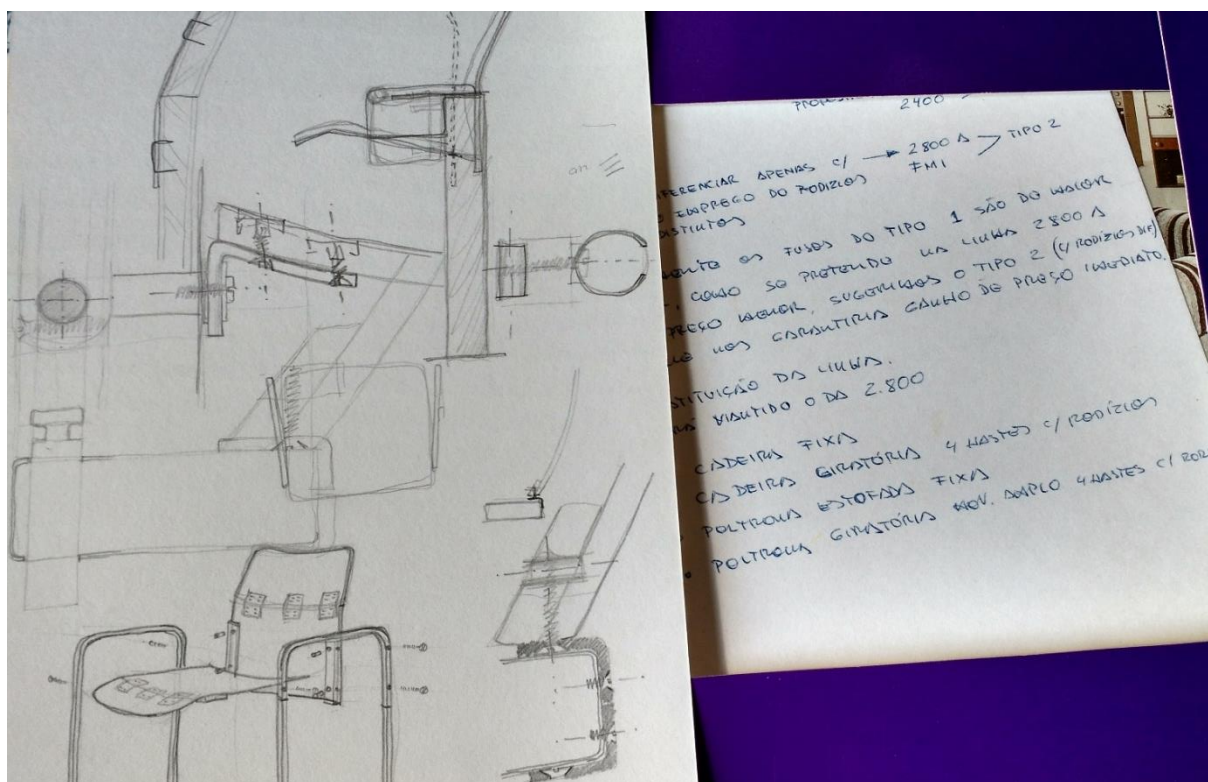 2400
DIFERENCIAR APENAS C/ → 2800 A > TIPO 2
EMPREGO DO RODIZIOS FMI
DISTINTOS
OS FUSOS DO TIPO 1 SÃO DE MAIOR
COMO SE PRETENDE NA LINHA 2800 A
PREÇO MENOR, SUGERIMOS O TIPO 2 (C/ RODIZIOS DIF)
NOS GARANTIRIA GANHO DE PREÇO IMEDIATO.
DA LINHA.
MANTIDO O DA 2.800
CADEIRA FIXA
CADEIRA GIRATÓRIA 4 HASTES C/ RODÍZIOS
POLTRONA ESTOFADA FIXA
POLTRONA GIRATÓRIA MOV. AMPLO 4 HASTES C/